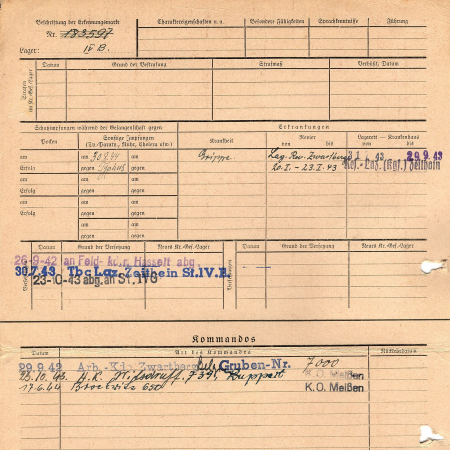 Beschriftung der Erkennungsmarke
Nr. 183597
Lager: IV B.
Charaktereigenschaften u. a.
Besondere Fähigkeiten
Sprachkenntnisse
Führung
Strafen im Kr.-Gef.-Lager
Datum
Grund der Bestrafung
Strafmaß
Verbüßt, Datum
Schutzimpfungen während der Gefangenschaft gegen
Pocken
Sonstige Impfungen
(Ty.-Paraty., Ruhr, Cholera usw.)
Erkrankungen
Krankheit
Revier
von bis
Lazarett — Krankenhaus
von bis
am
am 30.9.44
am
Erfolg
gegen
gegen
am
am
am
Erfolg
gegen
gegen
am
am
gegen
gegen
am
am
gegen
gegen
Grippe
Lag. Rev. Zwartberg
20.1. - 23.1.43
43
29.9.43
Kgf.-Laz. (Kgf.) Zeithain
Datum
Grund der Versetzung
Neues Kr.-Gef.-Lager
Datum
Grund der Versetzung
Neues Kr.-Gef.-Lager
26-9-42 an Feld-kdr. Hasselt abg.
30.7.43 Tbc Laz Zeithein St.IV.B.
23-10-43 abg. an St. IV G
Kommandos
Datum
Art des Kommandos
Rückkehrdatum
29.9.42 Arb.-Kd. Zwartberg Gruben-Nr. 7000
7394 Ruppert
K.O. Meißen
17.6.44 Brockwitz 650
K.O. Meißen